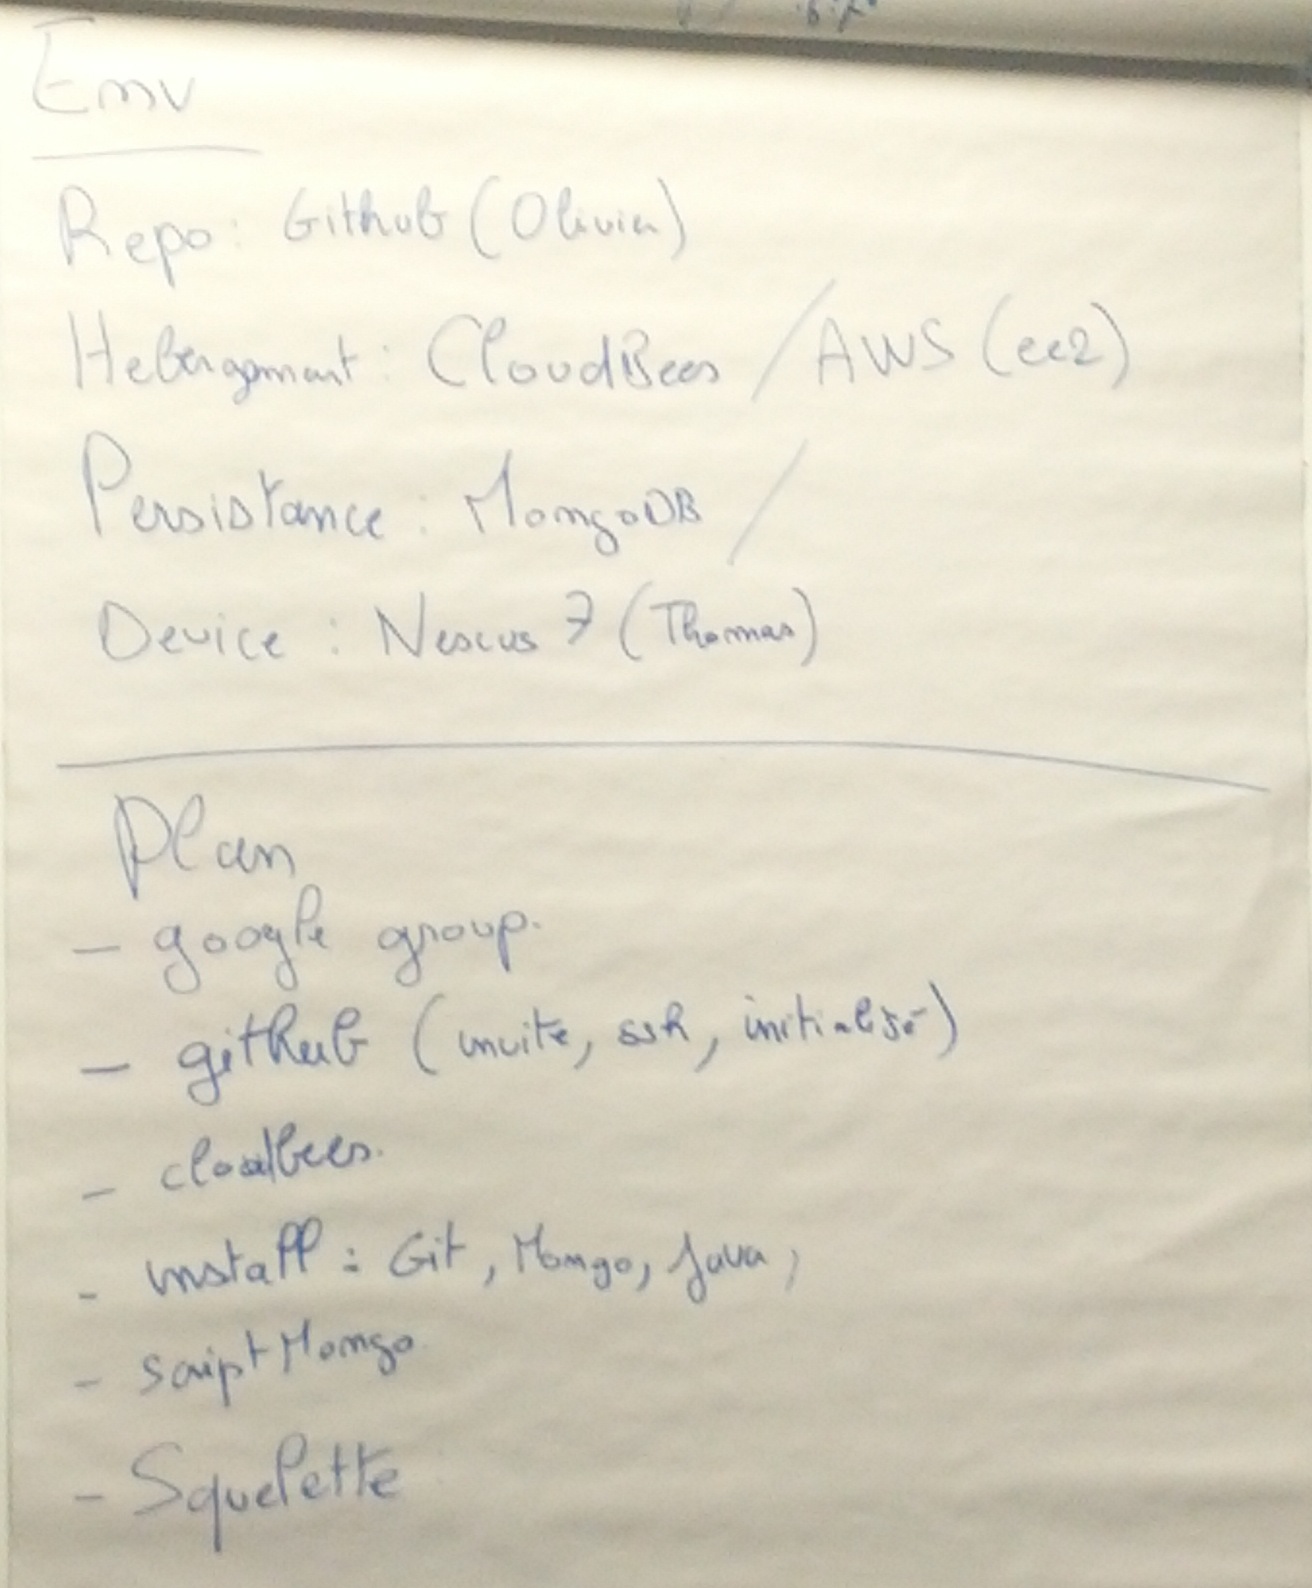 Env
Repo : Github (Olivier)
Hebergement : CloudBees / AWS (ec2)
Persistance : MongoDB /
Device : Nexus 7 (Thomas)
Plan
- google group.
- github (invite, ssh, initialisé)
- cloudbees.
- install : Git, Mongo, Java,
- script Mongo
- Squelette